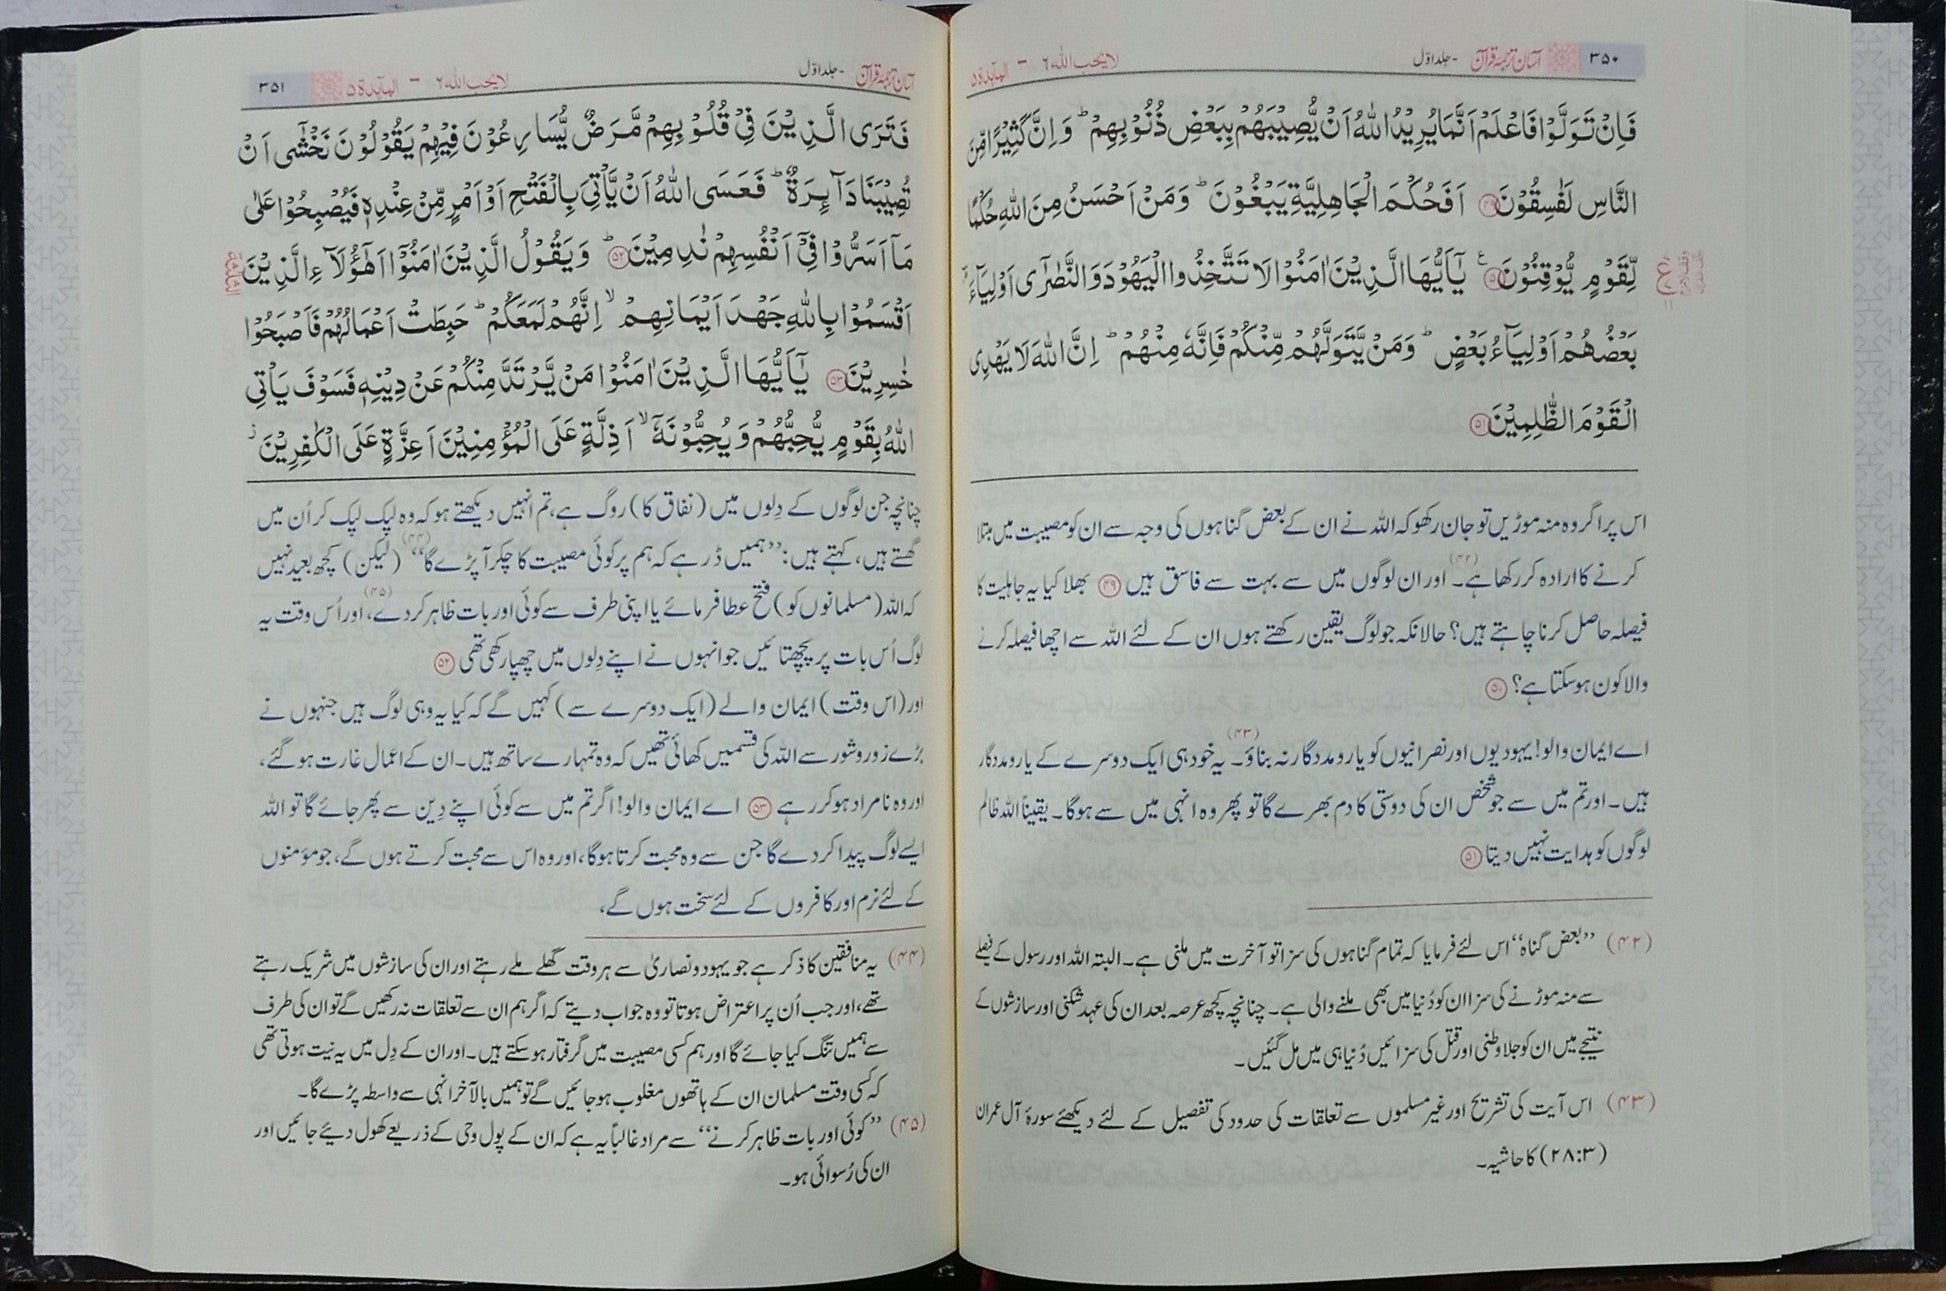 ۳۵۰ آسان ترجمۂ قرآن - جلد اوّل لا یحب اللہ ۶ - المآئدۃ ۵
فَاِنْ تَوَلَّوْا فَاعْلَمْ اَنَّمَا يُرِيْدُ اللّٰهُ اَنْ يُّصِيْبَهُمْ بِبَعْضِ ذُنُوْبِهِمْ ؕ وَ اِنَّ كَثِيْرًا مِّنَ
النَّاسِ لَفٰسِقُوْنَ ﴿۴۹﴾ اَفَحُكْمَ الْجَاهِلِيَّةِ يَبْغُوْنَ ؕ وَ مَنْ اَحْسَنُ مِنَ اللّٰهِ حُكْمًا
لِّقَوْمٍ يُّوْقِنُوْنَ ﴿۵۰﴾ ع يٰۤاَيُّهَا الَّذِيْنَ اٰمَنُوْا لَا تَتَّخِذُوا الْيَهُوْدَ وَ النَّصٰرٰۤى اَوْلِيَآءَ ؔ
بَعْضُهُمْ اَوْلِيَآءُ بَعْضٍ ؕ وَ مَنْ يَّتَوَلَّهُمْ مِّنْكُمْ فَاِنَّهٗ مِنْهُمْ ؕ اِنَّ اللّٰهَ لَا يَهْدِى
الْقَوْمَ الظّٰلِمِيْنَ ﴿۵۱﴾
اس پر اگر وہ منہ موڑیں تو جان رکھو کہ اللہ نے ان کے بعض گناہوں کی وجہ سے ان کو مصیبت میں مبتلا
کرنے کا ارادہ کر رکھا ہے۔(۴۲) اور ان لوگوں میں سے بہت سے فاسق ہیں ﴿۴۹﴾ بھلا کیا یہ جاہلیت کا
فیصلہ حاصل کرنا چاہتے ہیں؟ حالانکہ جو لوگ یقین رکھتے ہوں ان کے لئے اللہ سے اچھا فیصلہ کرنے
والا کون ہوسکتا ہے؟ ﴿۵۰﴾
اے ایمان والو! یہودیوں اور نصرانیوں کو یار و مددگار نہ بناؤ۔(۴۳) یہ خود ہی ایک دوسرے کے یار و مددگار
ہیں۔ اور تم میں سے جو شخص ان کی دوستی کا دم بھرے گا تو پھر وہ انہی میں سے ہوگا۔ یقیناً اللہ ظالم
لوگوں کو ہدایت نہیں دیتا ﴿۵۱﴾
(۴۲) ’’بعض گناہ‘‘ اس لئے فرمایا کہ تمام گناہوں کی سزا تو آخرت میں ملنی ہے۔ البتہ اللہ اور رسول کے فیصلے
سے منہ موڑنے کی سزا ان کو دُنیا میں بھی ملنے والی ہے۔ چنانچہ کچھ عرصہ بعد ان کی عہد شکنی اور سازشوں کے
نتیجے میں ان کو جلاوطنی اور قتل کی سزائیں دُنیا ہی میں مل گئیں۔
(۴۳) اس آیت کی تشریح اور غیر مسلموں سے تعلقات کی حدود کی تفصیل کے لئے دیکھئے سورۂ آل عمران
(۲۸:۳) کا حاشیہ۔
۳۵۱ لا یحب اللہ ۶ - المآئدۃ ۵ آسان ترجمۂ قرآن - جلد اوّل
فَتَرَى الَّذِيْنَ فِىْ قُلُوْبِهِمْ مَّرَضٌ يُّسَارِعُوْنَ فِيْهِمْ يَقُوْلُوْنَ نَخْشٰۤى اَنْ
تُصِيْبَنَا دَآئِرَةٌ ؕ فَعَسَى اللّٰهُ اَنْ يَّاْتِىَ بِالْفَتْحِ اَوْ اَمْرٍ مِّنْ عِنْدِهٖ فَيُصْبِحُوْا عَلٰى
مَاۤ اَسَرُّوْا فِىْۤ اَنْفُسِهِمْ نٰدِمِيْنَ ﴿۵۲﴾ ؕ وَ يَقُوْلُ الَّذِيْنَ اٰمَنُوْۤا اَهٰۤؤُلَآءِ الَّذِيْنَ
اَقْسَمُوْا بِاللّٰهِ جَهْدَ اَيْمَانِهِمْ ۙ اِنَّهُمْ لَمَعَكُمْ ؕ حَبِطَتْ اَعْمَالُهُمْ فَاَصْبَحُوْا
خٰسِرِيْنَ ﴿۵۳﴾ يٰۤاَيُّهَا الَّذِيْنَ اٰمَنُوْا مَنْ يَّرْتَدَّ مِنْكُمْ عَنْ دِيْنِهٖ فَسَوْفَ يَاْتِى
اللّٰهُ بِقَوْمٍ يُّحِبُّهُمْ وَ يُحِبُّوْنَهٗۤ ۙ اَذِلَّةٍ عَلَى الْمُؤْمِنِيْنَ اَعِزَّةٍ عَلَى الْكٰفِرِيْنَ ؗ
چنانچہ جن لوگوں کے دِلوں میں (نفاق کا) روگ ہے، تم انہیں دیکھتے ہو کہ وہ لپک لپک کر اُن میں
گھستے ہیں، کہتے ہیں: ’’ہمیں ڈر ہے کہ ہم پر کوئی مصیبت کا چکر آ پڑے گا‘‘(۴۴) (لیکن) کچھ بعید نہیں
کہ اللہ (مسلمانوں کو) فتح عطا فرمائے یا اپنی طرف سے کوئی اور بات ظاہر کردے،(۴۵) اور اُس وقت یہ
لوگ اُس بات پر پچھتائیں جو انہوں نے اپنے دِلوں میں چھپا رکھی تھی ﴿۵۲﴾
اور (اس وقت) ایمان والے (ایک دوسرے سے) کہیں گے کہ کیا یہ وہی لوگ ہیں جنہوں نے
بڑے زور و شور سے اللہ کی قسمیں کھائی تھیں کہ وہ تمہارے ساتھ ہیں۔ ان کے اعمال غارت ہوگئے،
اور وہ نامراد ہو کر رہے ﴿۵۳﴾ اے ایمان والو! اگر تم میں سے کوئی اپنے دِین سے پھر جائے گا تو اللہ
ایسے لوگ پیدا کردے گا جن سے وہ محبت کرتا ہوگا، اور وہ اس سے محبت کرتے ہوں گے، جو مؤمنوں
کے لئے نرم اور کافروں کے لئے سخت ہوں گے،
(۴۴) یہ منافقین کا ذکر ہے جو یہود و نصاریٰ سے ہر وقت گھلے ملے رہتے اور ان کی سازشوں میں شریک رہتے
تھے، اور جب اُن پر اعتراض ہوتا تو وہ جواب دیتے کہ اگر ہم ان سے تعلقات نہ رکھیں گے تو ان کی طرف
سے ہمیں تنگ کیا جائے گا اور ہم کسی مصیبت میں گرفتار ہوسکتے ہیں۔ اور ان کے دِل میں یہ نیت ہوتی تھی
کہ کسی وقت مسلمان ان کے ہاتھوں مغلوب ہوجائیں گے تو ہمیں بالآخر انہی سے واسطہ پڑے گا۔
(۴۵) ’’کوئی اور بات ظاہر کرنے‘‘ سے مراد غالباً یہ ہے کہ ان کے پول وحی کے ذریعے کھول دیئے جائیں اور
ان کی رُسوائی ہو۔